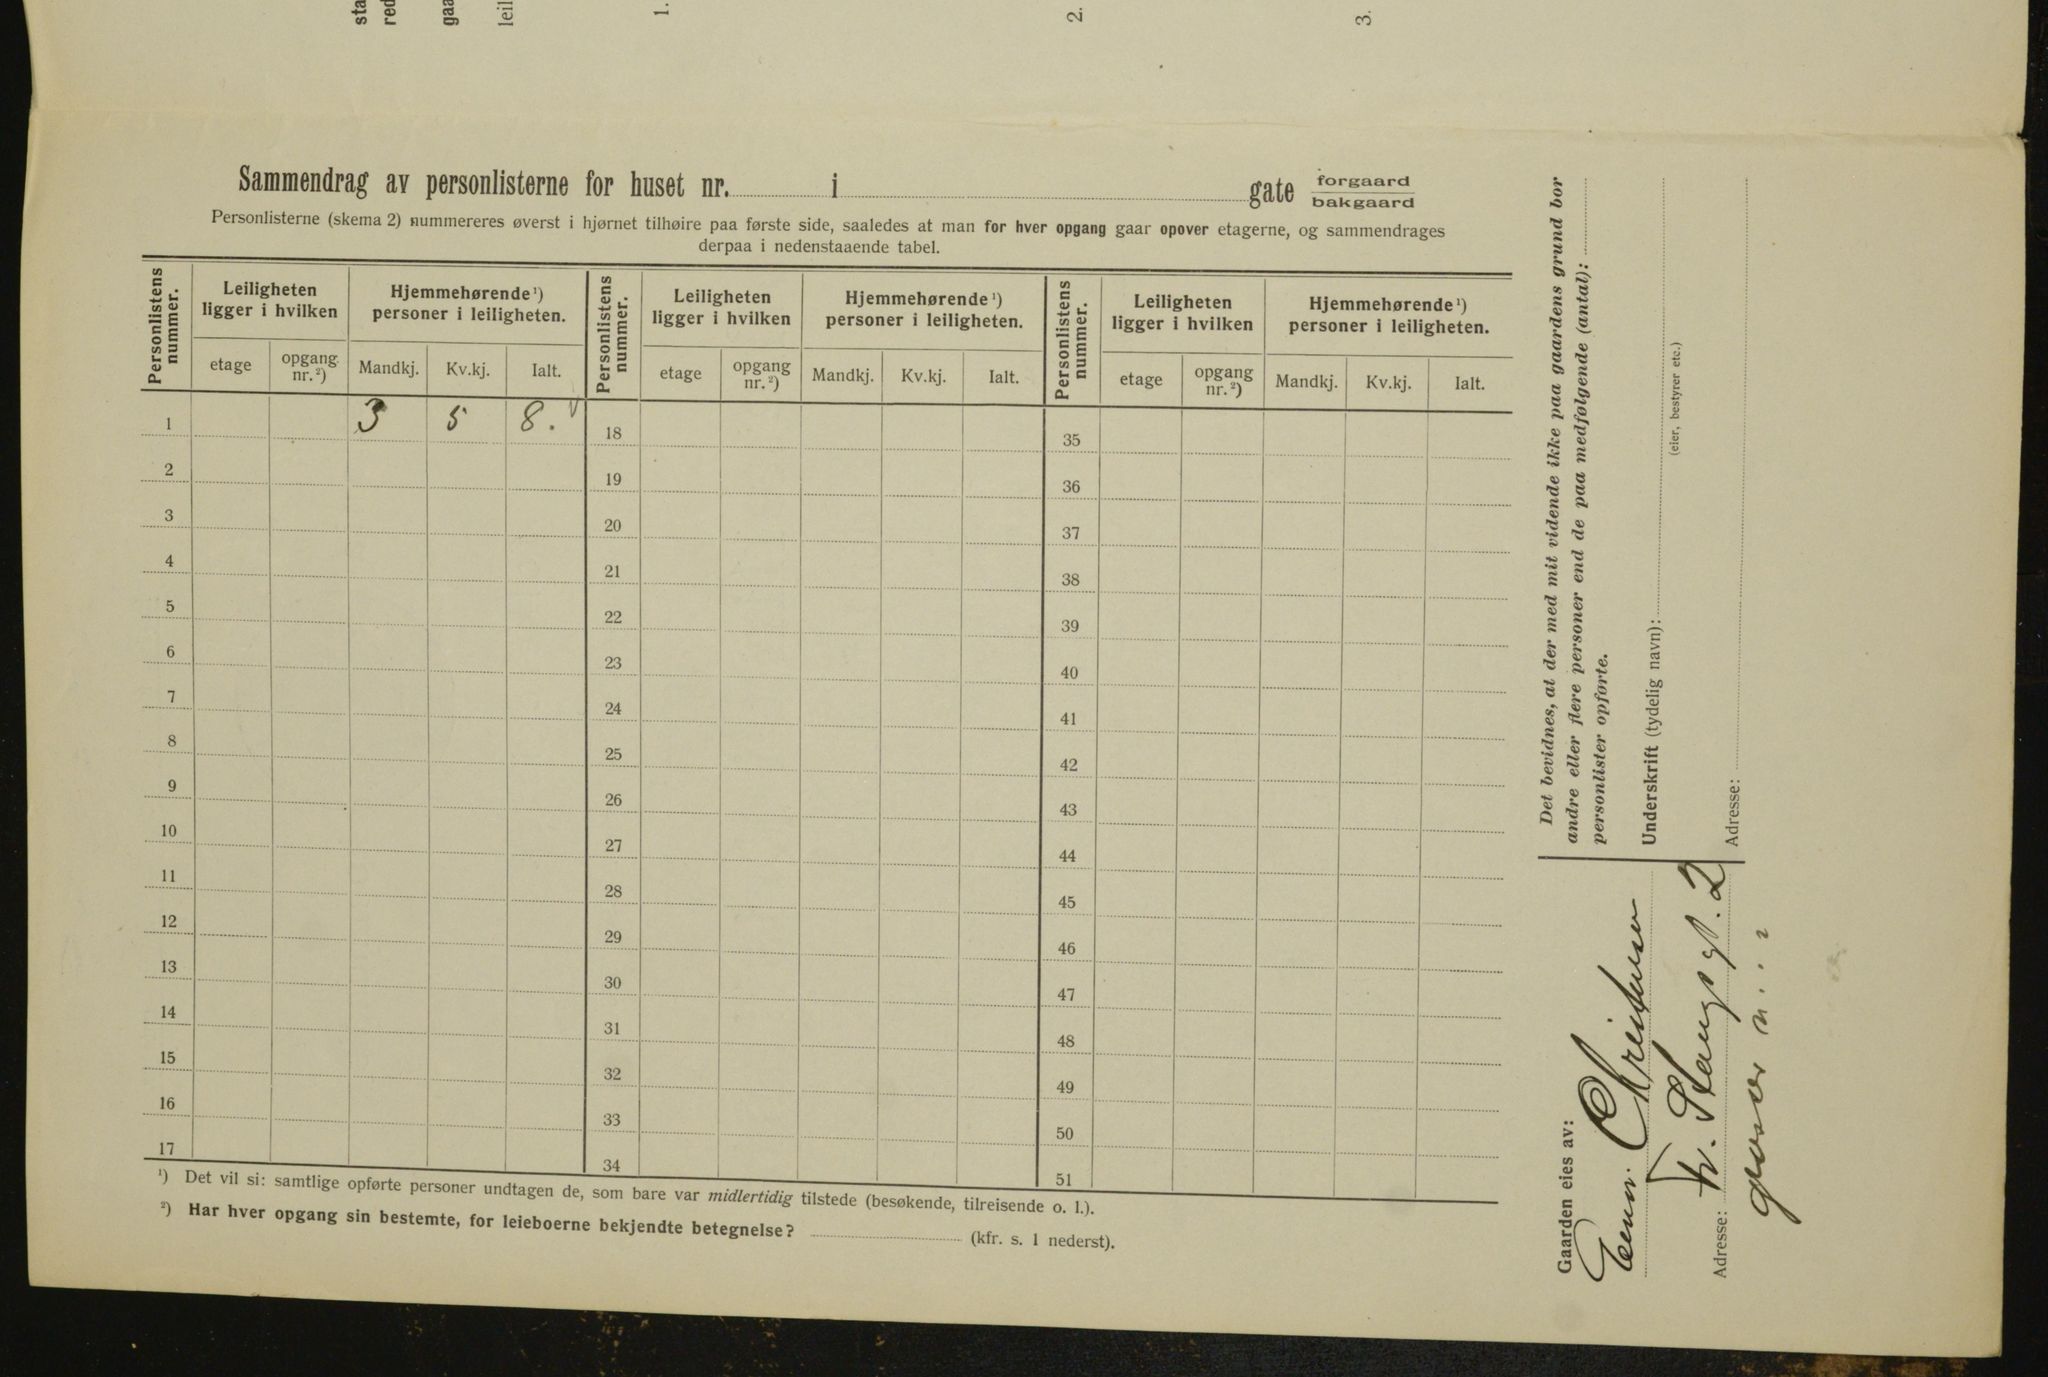 sta
red
gaa
leil
1.
2.
3.
Sammendrag av personlisterne for huset nr. i gate forgaard
bakgaard
Personlisterne (skema 2) nummereres øverst i hjørnet tilhøire paa første side, saaledes at man for hver opgang gaar opover etagerne, og sammendrages
derpaa i nedenstaaende tabel.
Personlistens nummer. Leiligheten ligger i hvilken Hjemmehørende ¹) personer i leiligheten. Personlistens nummer. Leiligheten ligger i hvilken Hjemmehørende ¹) personer i leiligheten. Personlistens nummer. Leiligheten ligger i hvilken Hjemmehørende ¹) personer i leiligheten.
etage opgang nr. ²) Mandkj. Kv.kj. Ialt. etage opgang nr. ²) Mandkj. Kv.kj. Ialt. etage opgang nr. ²) Mandkj. Kv.kj. Ialt.
1 3 5 8. 18 35
2 19 36
3 20 37
4 21 38
5 22 39
6 23 40
7 24 41
8 25 42
9 26 43
10 27 44
11 28 45
12 29 46
13 30 47
14 31 48
15 32 49
16 33 50
17 34 51
¹) Det vil si: samtlige opførte personer undtagen de, som bare var midlertidig tilstede (besøkende, tilreisende o. l.).
²) Har hver opgang sin bestemte, for leieboerne bekjendte betegnelse? (kfr. s. 1 nederst).
Det bevidnes, at der med mit vidende ikke paa gaardens grund bor
andre eller flere personer end de paa medfølgende (antal):
personlister opførte.
Underskrift (tydelig navn):
(eier, bestyrer etc.)
Adresse:
Gaarden eies av:
Chrístensen
Adresse: Fr. Stangs gt. 2